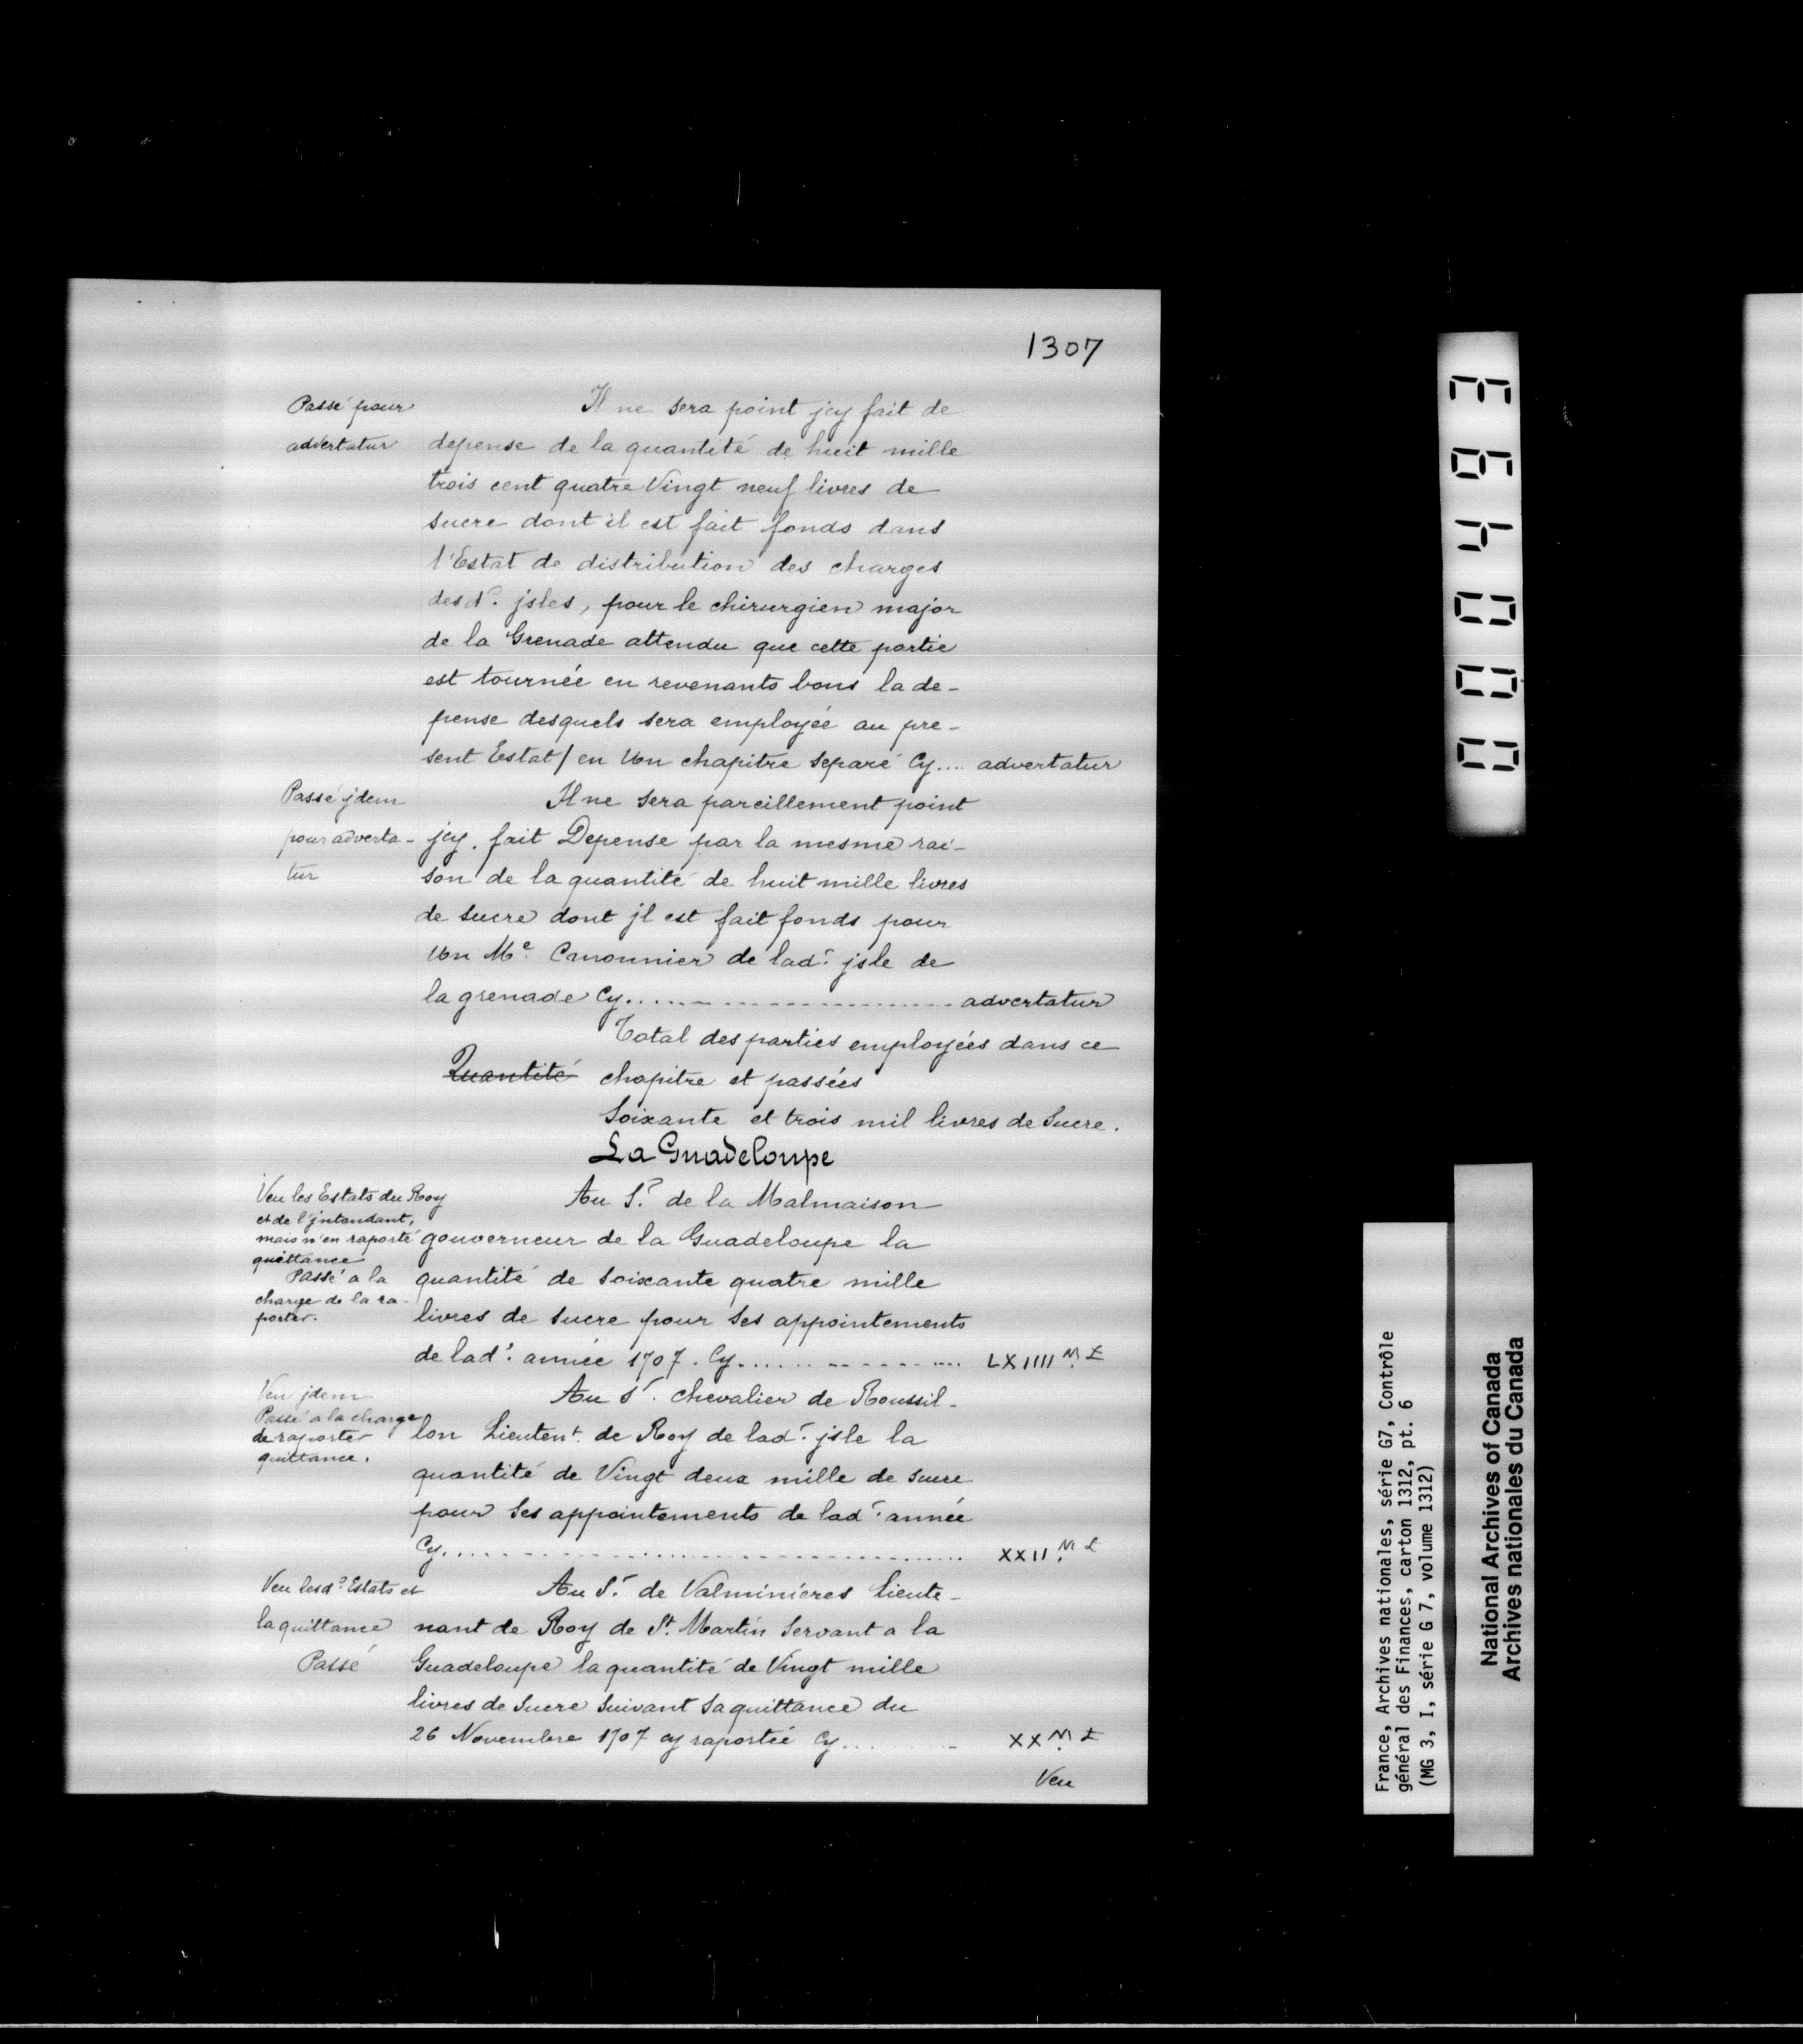 1307
Passé pour
advertatur
Il ne sera point jcy fait de
depense de la quantité de huit mille
trois cent quatre Vingt neuf livres de
sucre dont il est fait fonds dans
l'Estat de distribution des charges
desd. jsles, pour le chirurgien major
de la Grenade attendu que cette partie
est tournée en revenants bons la de-
pense desquels sera employée au pre-
sent Estat / en Un chapitre separé Cy.... advertatur
Passé jdem
pour adverta-
tur
Il ne sera pareillement point
jcy. fait Depense par la mesme rai-
son de la quantité de huit mille livres
de sucre dont jl est fait fonds pour
Un Me. Canonnier de lad. jsle de
la grenade Cy........................ advertatur
Total des parties employées dans ce
Quantité chapitre et passées
Soixante et trois mil livres de Sucre.
La Guadeloupe
Veu les Estats du Roy
et de l'jntendant,
mais n'en raporté
quittance
Passé a la
charge de la ra-
porter.
Au Sr. de la Malmaison
gouverneur de la Guadeloupe la
quantité de soixante quatre mille
livres de sucre pour ses appointements
de lad. année 1707. Cy................ LXIIII M. £
Veu jdem
Passé a la charge
de raporter
quittance.
Au Sr. chevalier de Roussil-
lon Lieutent. de Roy de lad. jsle la
quantité de Vingt deux mille de sucre
pour ses appointements de lad. année
Cy........................ XXII M. £
Veu lesd. Estats et
la quittance
Passé
Au Sr. de Valminieres Lieute-
nant de Roy de St. Martin Servant a la
Guadeloupe la quantité de Vingt mille
livres de Sucre Suivant sa quittance du
26 Novembre 1707 cy raportée Cy........ XX M. £
Veu
E64000
France, Archives nationales, série G7, Contrôle
général des Finances, carton 1312, pt. 6
(MG 3, I, série G 7, volume 1312)
National Archives of Canada
Archives nationales du Canada